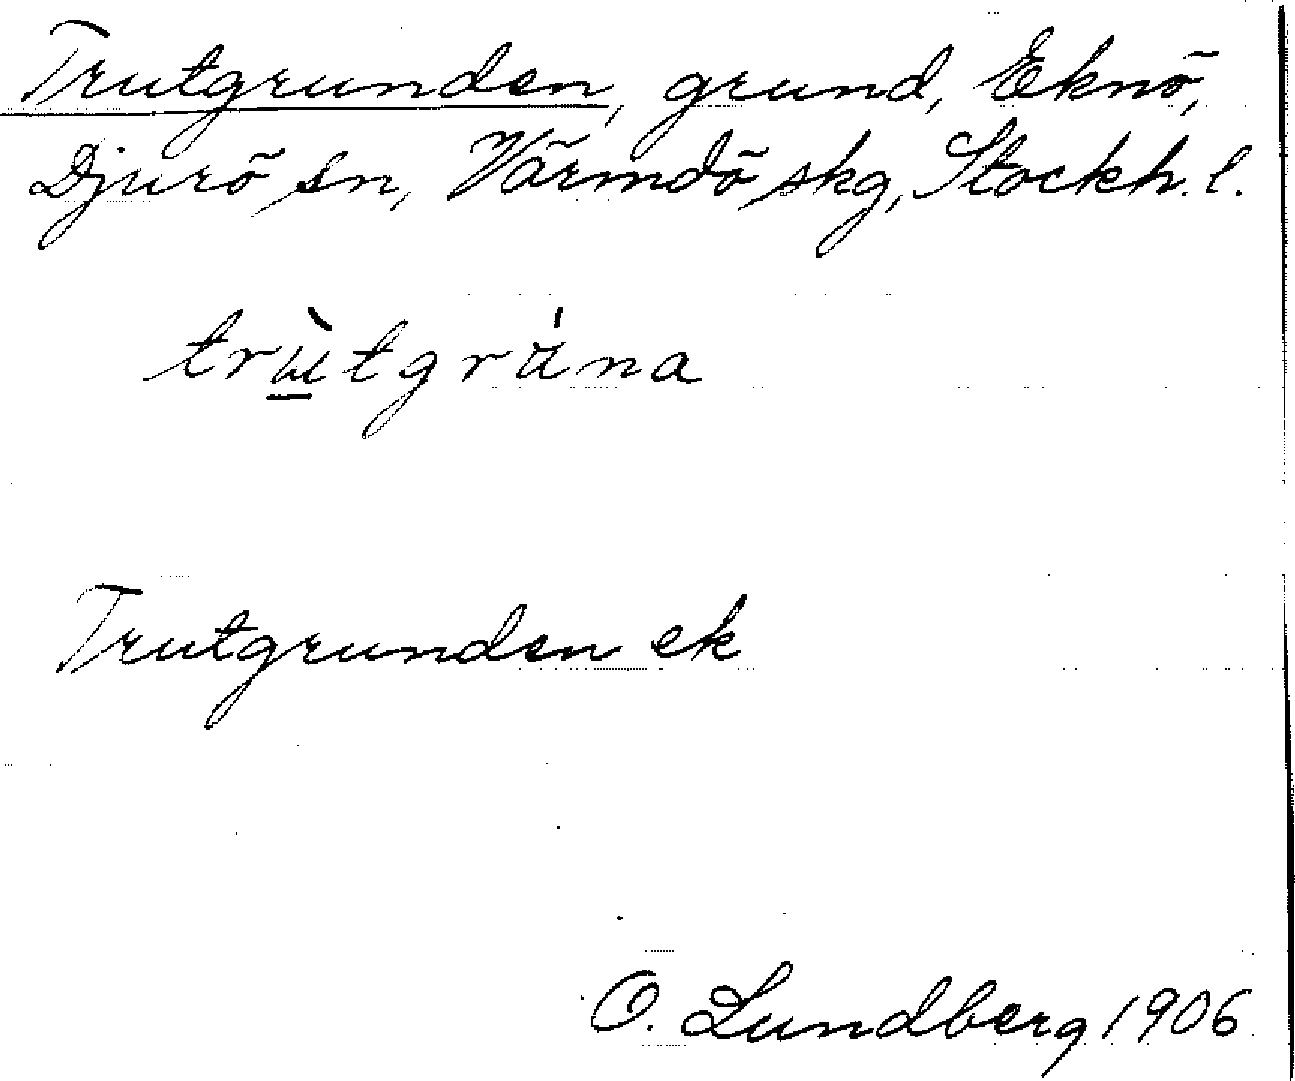 Trutgrunden, grund, Eknö,
Djurö sn, Värmdö skg, Stockh. l.
Trutgrunden ek
O. Lundberg 1906